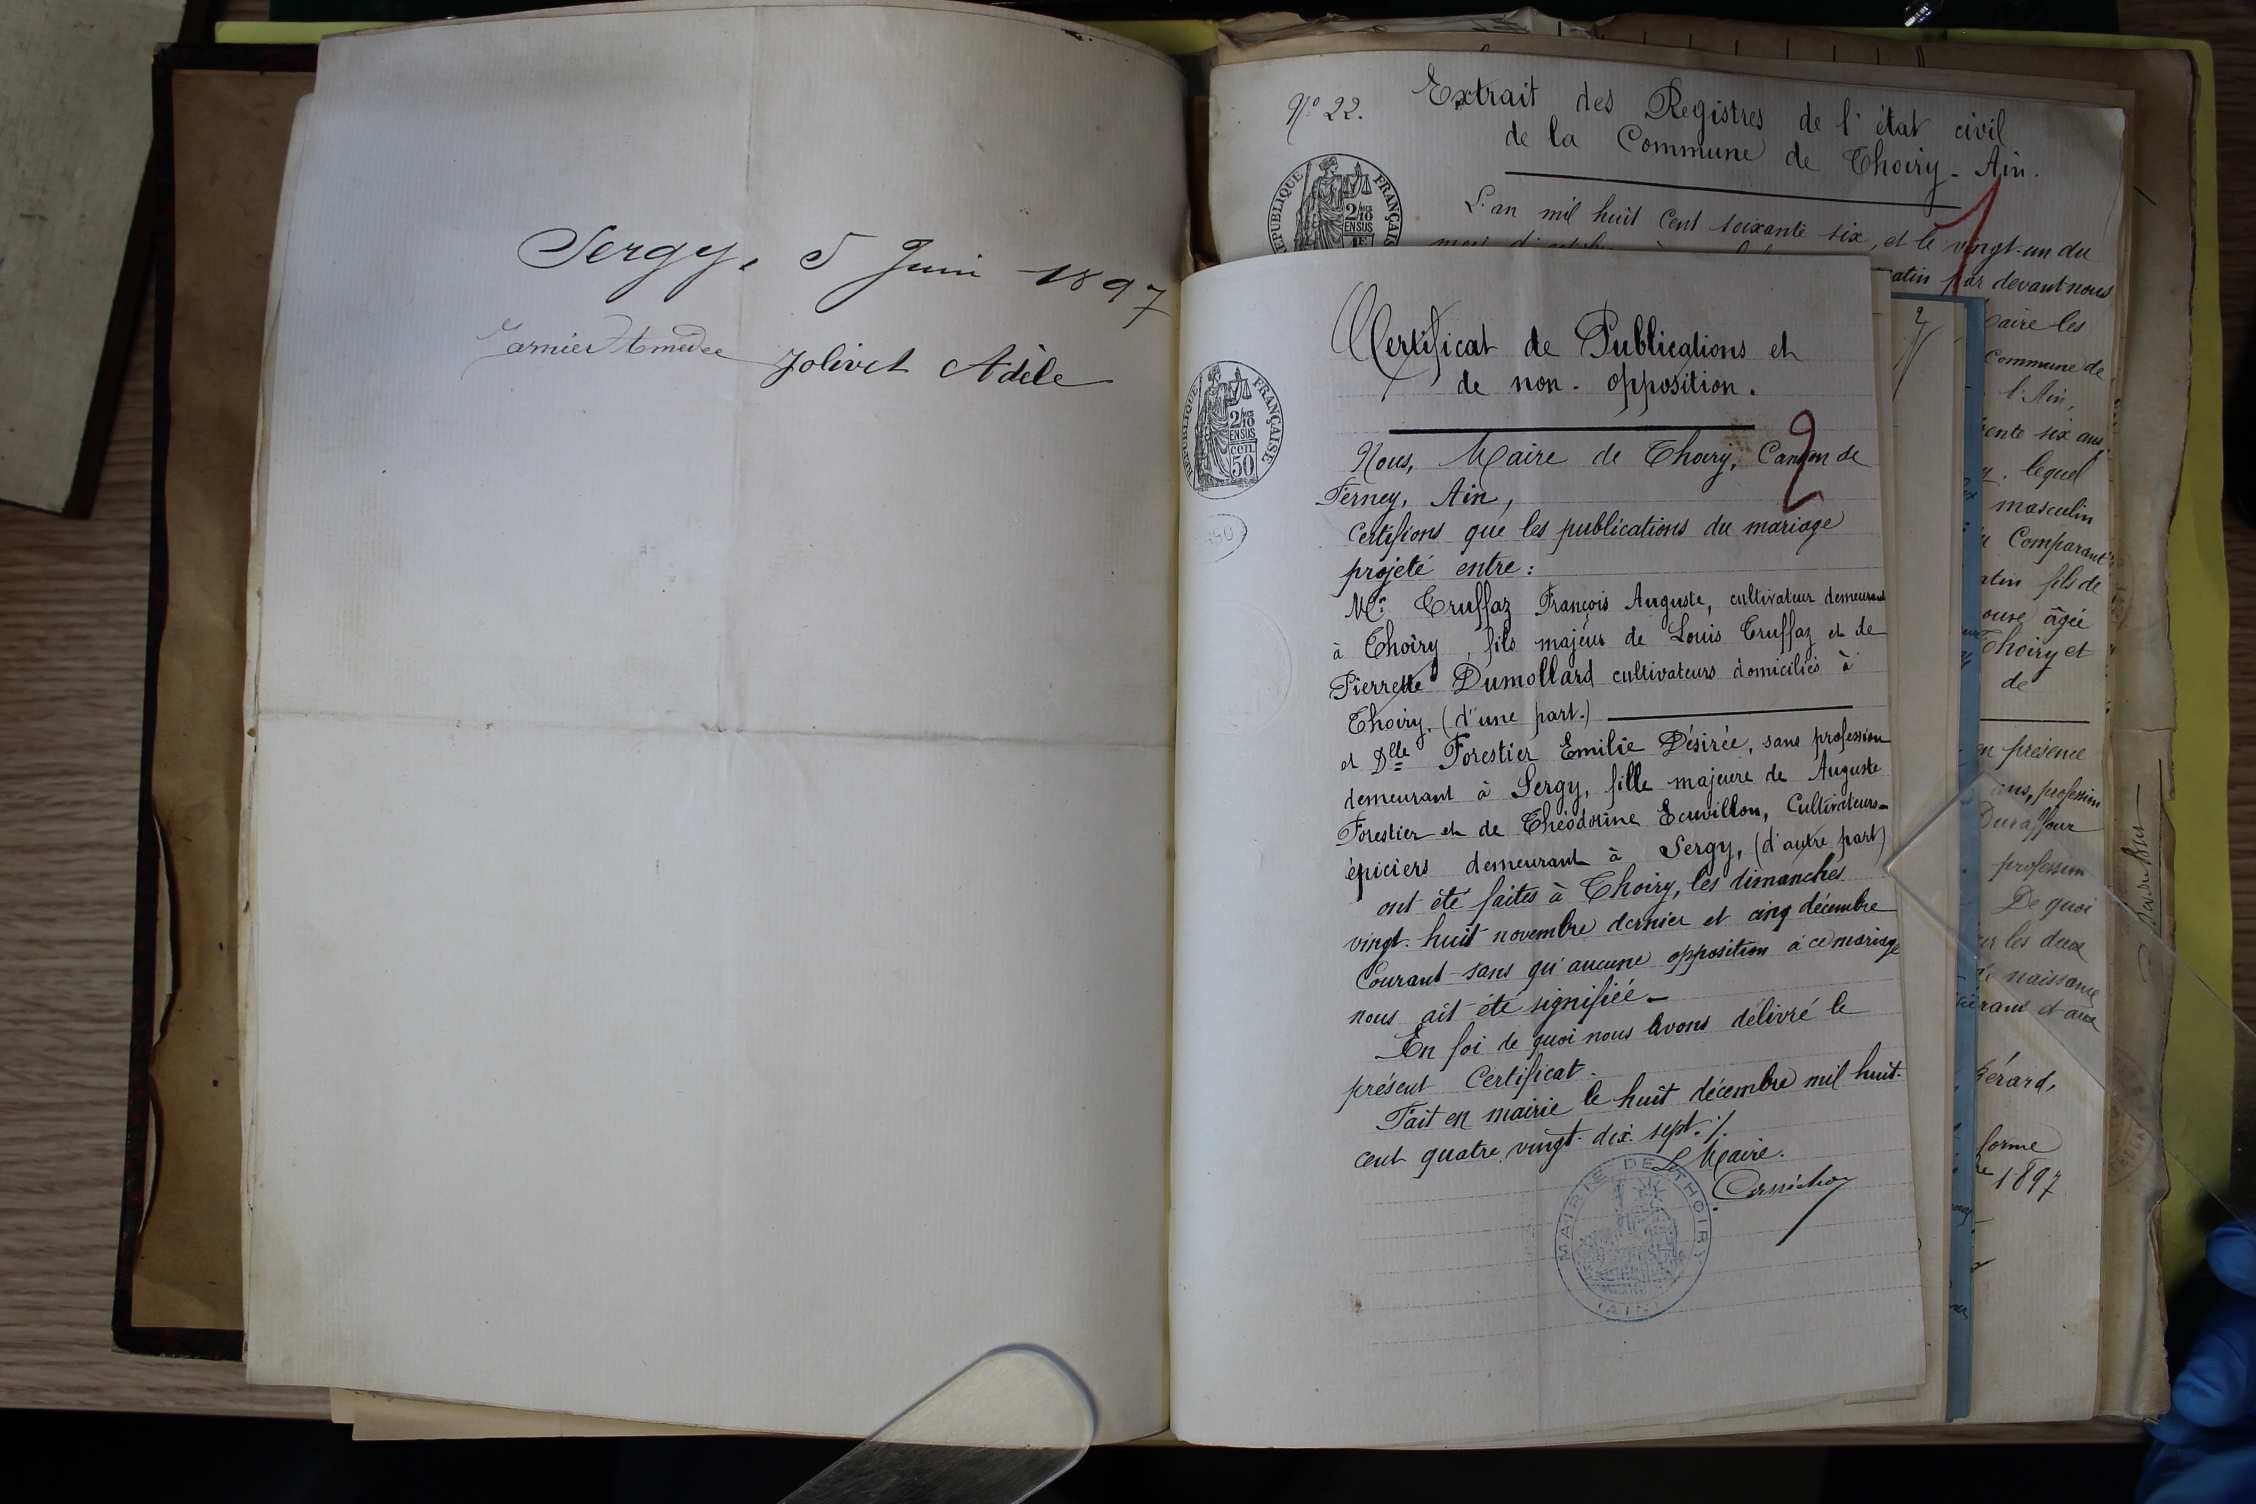 Sergy, 5 Juin 1897
Jolivet Adèle
No 22.
Extrait des Registres de l'état civil
de la Commune de Thoiry - Ain.
L'an mil huit cent soixante six, et le vingt-un du
atin par devant nous
aire les
Commune de
l'Ain,
ente six ans
lequel
masculin
Comparant
atin fils de
ouse âgée
Thoiry et
de
en présence
ans, profession
Duraffour
profession
De quoi
les deux
naissance
érant et aux
érard,
forme
1897
RÉPUBLIQUE FRANÇAISE
2/10
EN SUS
Certificat de Publications et
de non-opposition.
2
RÉPUBLIQUE FRANÇAISE
2/10
EN SUS
cen
50
Nous, Maire de Thoiry, Canton de
Ferney, Ain,
Certifions que les publications du mariage
projeté entre :
Mr Truffaz François Auguste, cultivateur demeurant
à Thoiry, fils majeur de Louis Truffaz et de
Pierrette Dumollard cultivateurs domiciliés à
Thoiry, (d'une part.)
et Dlle Forestier Emilie Désirée, sans profession
demeurant à Sergy, fille majeure de Auguste
Forestier et de Théodorine Ecuvillon, Cultivateurs-
épiciers demeurant à Sergy, (d'autre part)
ont été faites à Thoiry, les dimanches
vingt-huit novembre dernier et cinq décembre
Courant sans qu'aucune opposition à ce mariage
nous ait été signifiée -
En foi de quoi nous avons délivré le
présent Certificat.
Fait en mairie le huit décembre mil huit-
cent quatre vingt-dix-sept ./.
L Maire.
MAIRIE DE THOIRY
(AIN)